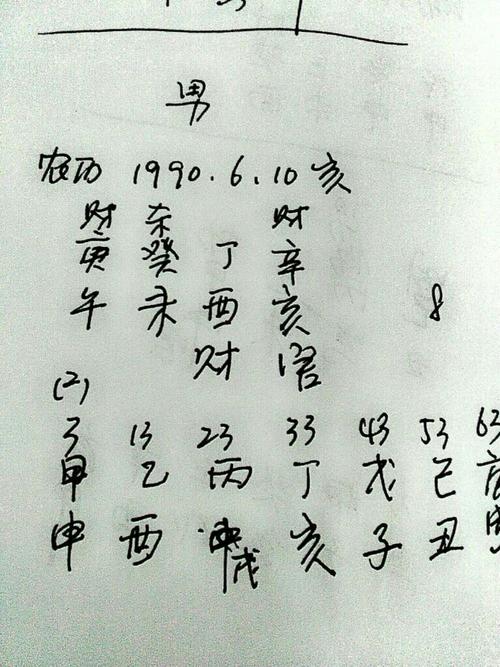 男
农历 1990.6.10亥
财 杀 财
庚 癸 丁 辛
午 未 酉 亥 8
财 官
(2)
3 13 23 33 43 53 63
甲 乙 丙 丁 戊 己 庚
申 酉 戌 亥 子 丑